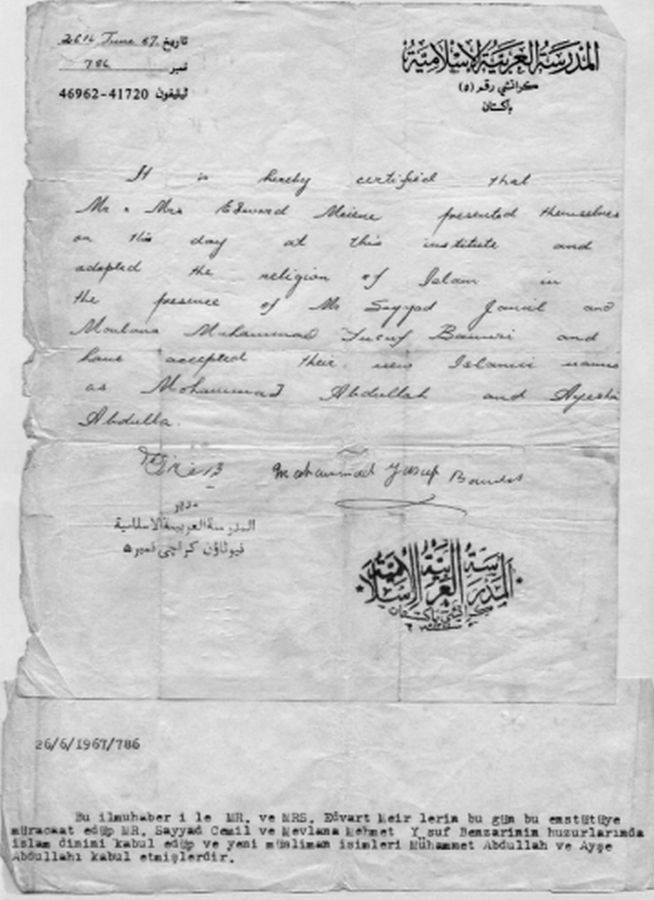 المدرسة العربية الإسلامية
كراتشي رقم (٥)
باكستان
تاريخ 26th June 67.
نمبر 786
ٹیلیفون 46962-41720
It is hereby certified that
Mr & Mrs Edward Meiene presented themselves
on this day at this institute and
adopted the religion of Islam in
the presence of Mr Sayyad Jamil and
Moulana Muhammad Yusuf Banuri and
have accepted their new Islamic names
as Mohammad Abdullah and Ayesha
Abdulla.
Mohammad Yusuf
مدير
المدرسة العربية الاسلامية
نیوٹاؤن کراچی نمبر ۵
المدرسة العربية الإسلامية
كراتشي باكستان
26/6/1967/786
Bu ilmuhaber i le MR. ve MRS. Edvart Meir lerin bu gün bu enstütüye
müracaat edüp MR. Sayyad Cemil ve Mevlana Mehmet Y suf Benzarinin huzurlarında
islam dinini kabul edüp ve yeni müsliman isimleri Mühammet Abdullah ve Ayşe
Abdullahı kabul etmişlerdir.